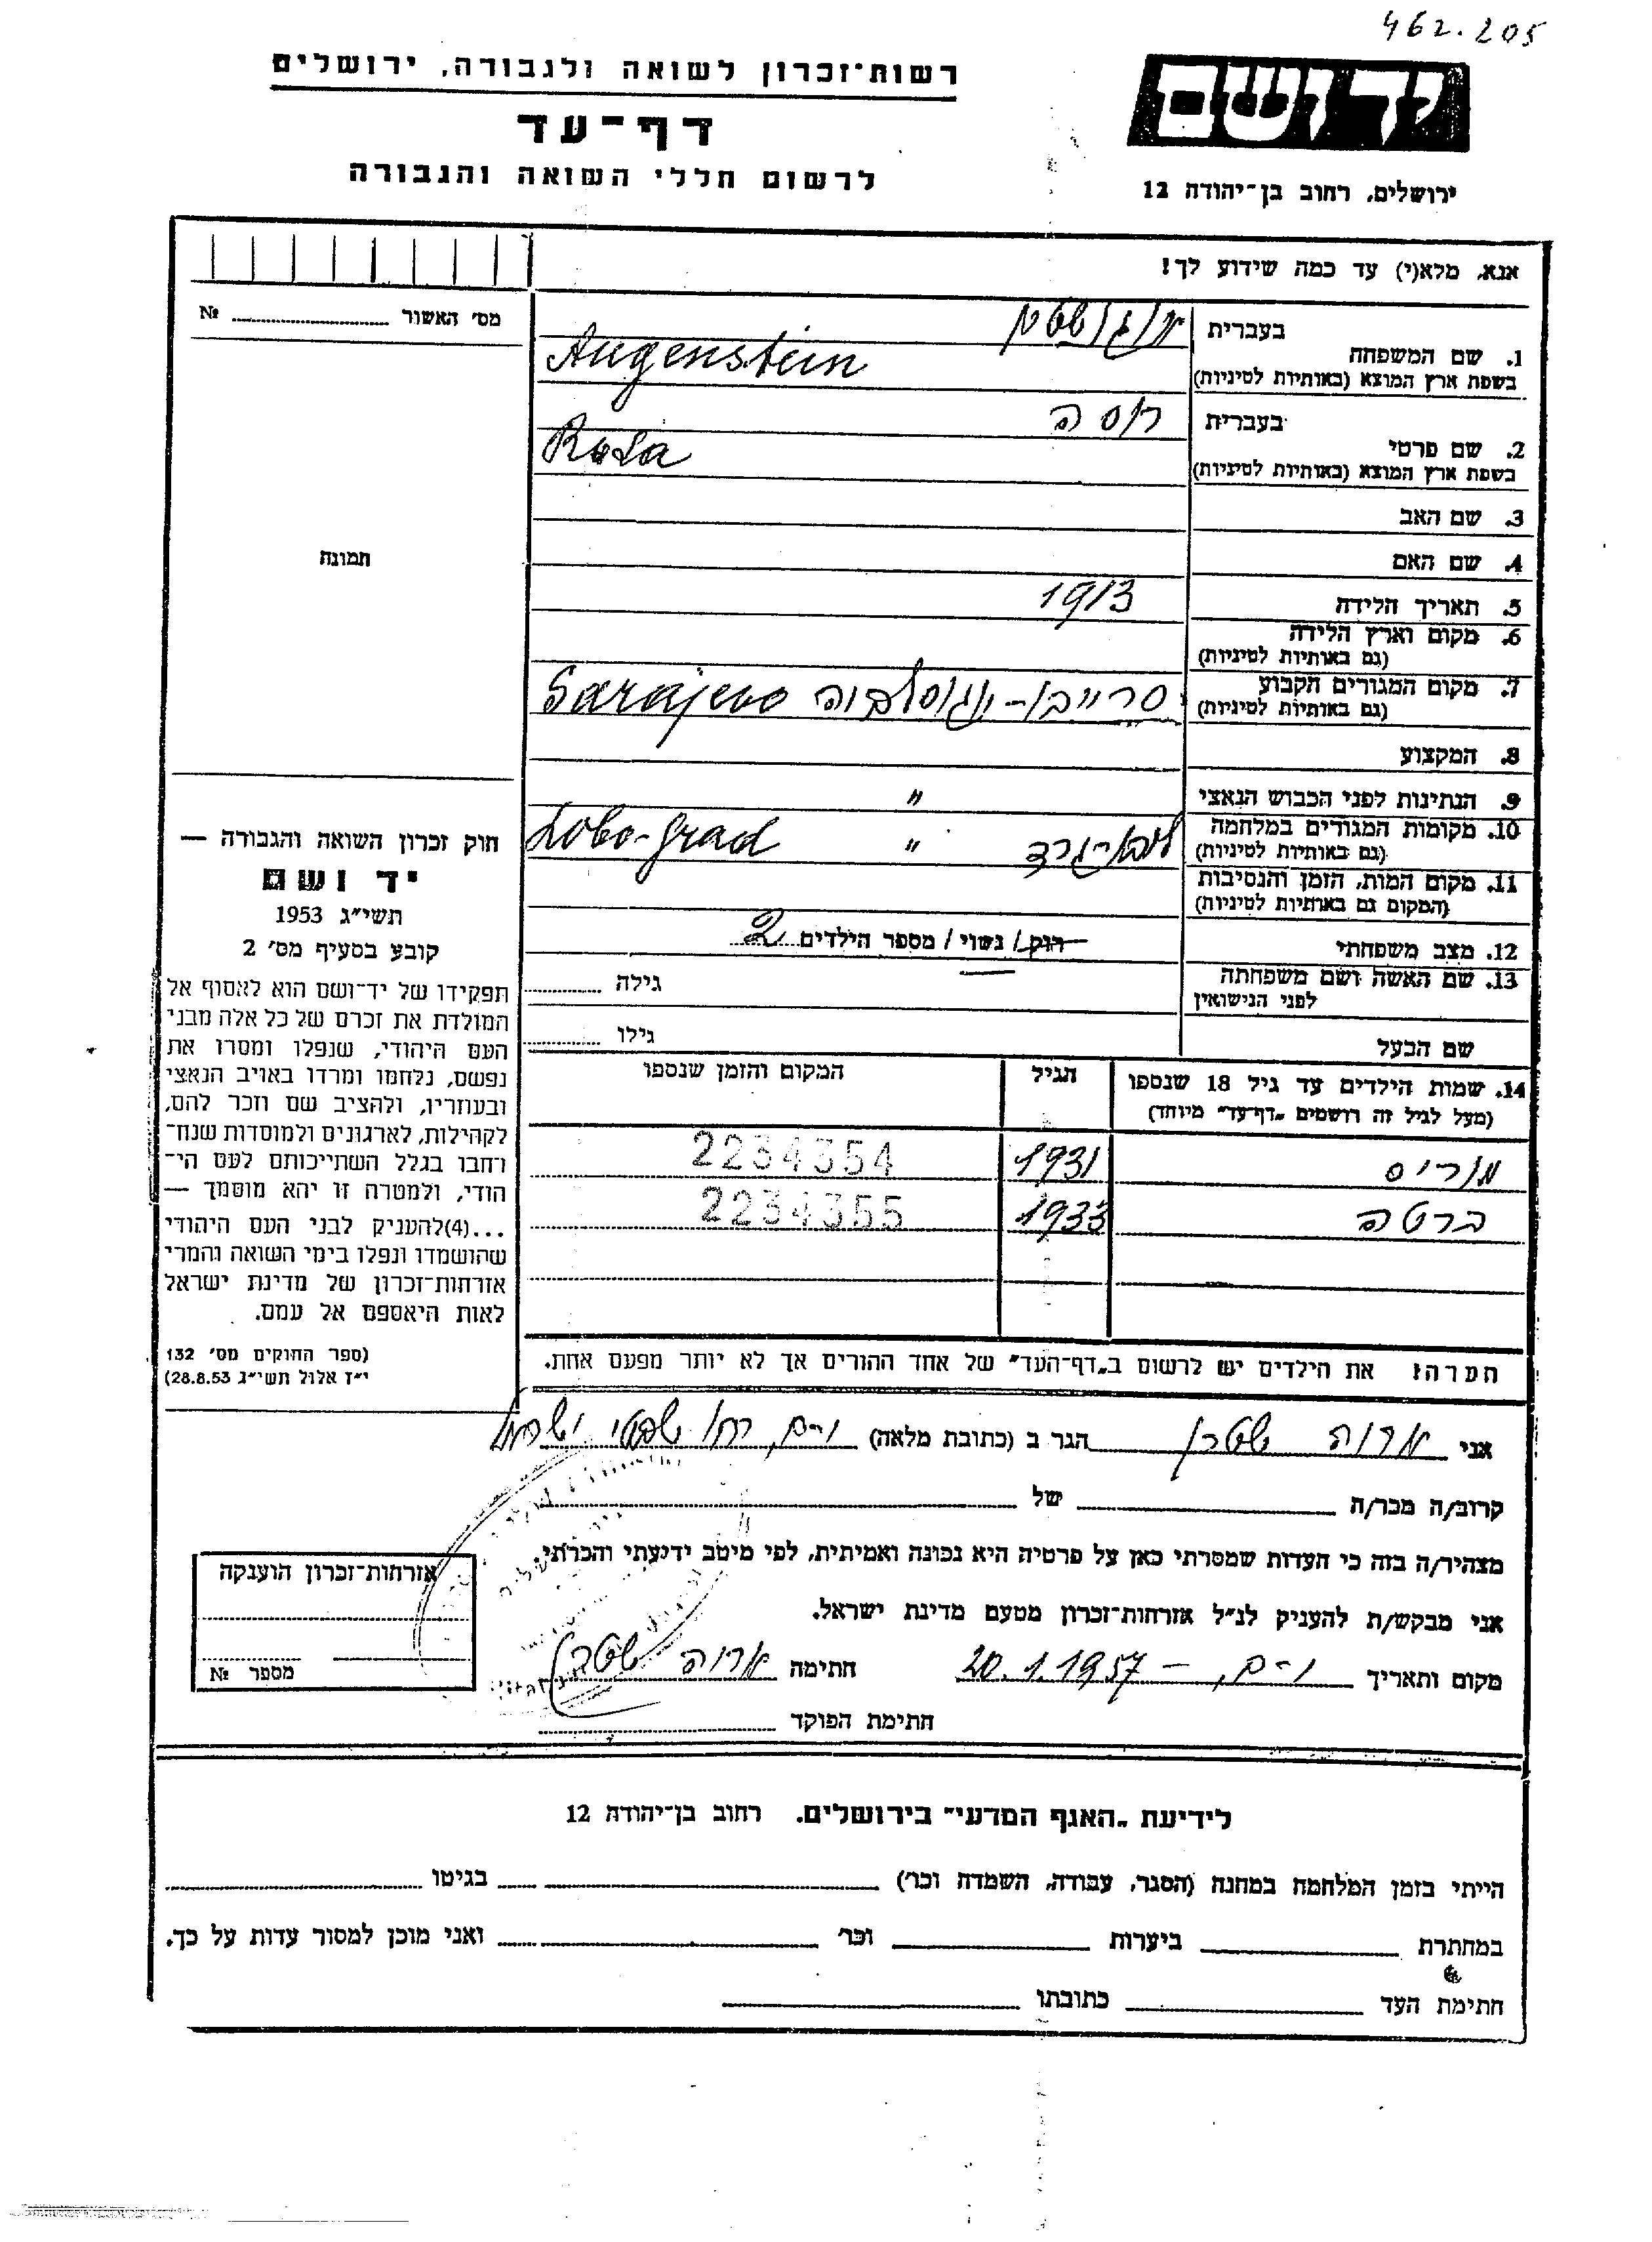 462.205
רשות־זכרון לשואה ולגבורה, ירושלים
יד ושם
דף־עד
לרשום חללי השואה והגבורה
ירושלים, רחוב בן־יהודה 12
אנא, מלא(י) עד כמה שידוע לך!
מס׳ האשור № ........
1. שם המשפחה
בעברית
בשפת ארץ המוצא (באותיות לטיניות)
Augenstein
2. שם פרטי
בעברית רוסה
בשפת ארץ המוצא (באותיות לטיניות)
Rosa
3. שם האב
תמונה
4. שם האם
5. תאריך הלידה 1913
6. מקום וארץ הלידה
(גם באותיות לטיניות)
7. מקום המגורים הקבוע
(גם באותיות לטיניות)
סרייבו - יוגוסלביה Sarajevo
8. המקצוע
9. הנתינות לפני הכבוש הנאצי "
10. מקומות המגורים במלחמה
(גם באותיות לטיניות)
לובו-גרד " Lobo-grad
11. מקום המות, הזמן והנסיבות
(המקום גם באותיות לטיניות)
12. מצב משפחתי רוק / נשוי / מספר הילדים 2
13. שם האשה ושם משפחתה
לפני הנישואין
גילה
שם הבעל גילו
14. שמות הילדים עד גיל 18 שנספו
(מעל לגיל זה רושמים „דף־עד״ מיוחד)
הגיל
המקום והזמן שנספו
מוריס 1931 2234354
ברטה 1933 2234355
חוק זכרון השואה והגבורה —
יד ושם
תשי״ג 1953
קובע בסעיף מס׳ 2
תפקידו של יד־ושם הוא לאסוף אל
המולדת את זכרם של כל אלה מבני
העם היהודי, שנפלו ומסרו את
נפשם, נלחמו ומרדו באויב הנאצי
ובעוזריו, ולהציב שם וזכר להם,
לקהילות, לארגונים ולמוסדות שנח־
רחבו בגלל השתייכותם לעם הי־
הודי, ולמטרה זו יהא מוסמך —
...(4)להעניק לבני העם היהודי
שהושמדו ונפלו בימי השואה והמרי
אזרחות־זכרון של מדינת ישראל
לאות היאספם אל עמם.
(ספר החוקים מס׳ 132
י״ז אלול תשי״ג 28.8.53)
הערה! את הילדים יש לרשום ב„דף־העד״ של אחד ההורים אך לא יותר מפעם אחת.
אני שטרן הגר ב (כתובת מלאה) י-ם, רח׳ שבטי ישראל
קרוב/ה מכר/ה של
מצהיר/ה בזה כי העדות שמסרתי כאן על פרטיה היא נכונה ואמיתית, לפי מיטב ידיעתי והכרתי.
אני מבקש/ת להעניק לנ״ל אזרחות־זכרון מטעם מדינת ישראל.
מקום ותאריך י-ם, - 20.1.1957 חתימה שטרן
חתימת הפוקד
אזרחות־זכרון הוענקה
מספר №
לידיעת „האגף המדעי״ בירושלים. רחוב בן־יהודה 12
הייתי בזמן המלחמה במחנה (הסגר, עבודה, השמדה וכו׳) בגיטו
במחתרת ביערות וכו׳ ואני מוכן למסור עדות על כך.
חתימת העד כתובתו